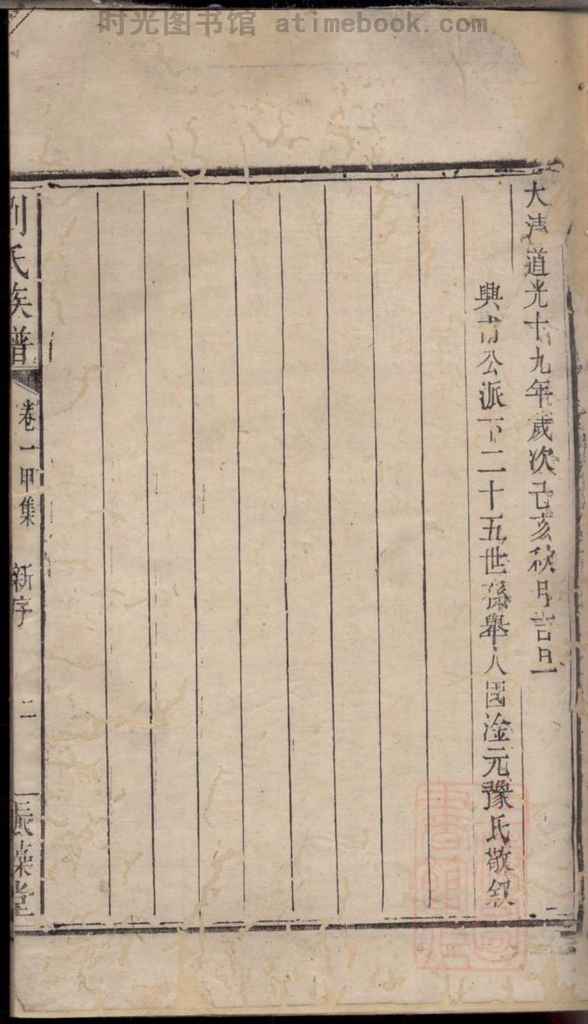 时光图书馆 atimebook.com
大清道光十九年歲次己亥秋月吉旦
興甫公派下二十五世孫舉人國淦元豫氏敬叙
劉氏族譜 卷一甲集 新序 二 振藻堂